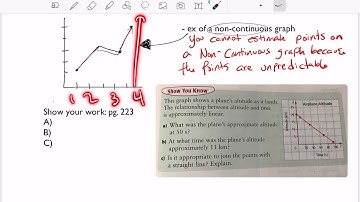 - ex of a non-continuous graph
You cannot estimate points on
a Non-Continuous graph because
the points are unpredictable
1 2 3 4
Show your work: pg. 223
A)
B)
C)
Show You Know
This graph shows a plane's altitude as it lands.
The relationship between altitude and time
is approximately linear.
a) What was the plane's approximate altitude
at 50 s?
b) At what time was the plane's altitude
approximately 11 km?
c) Is it appropriate to join the points with
a straight line? Explain.
Airplane Altitude